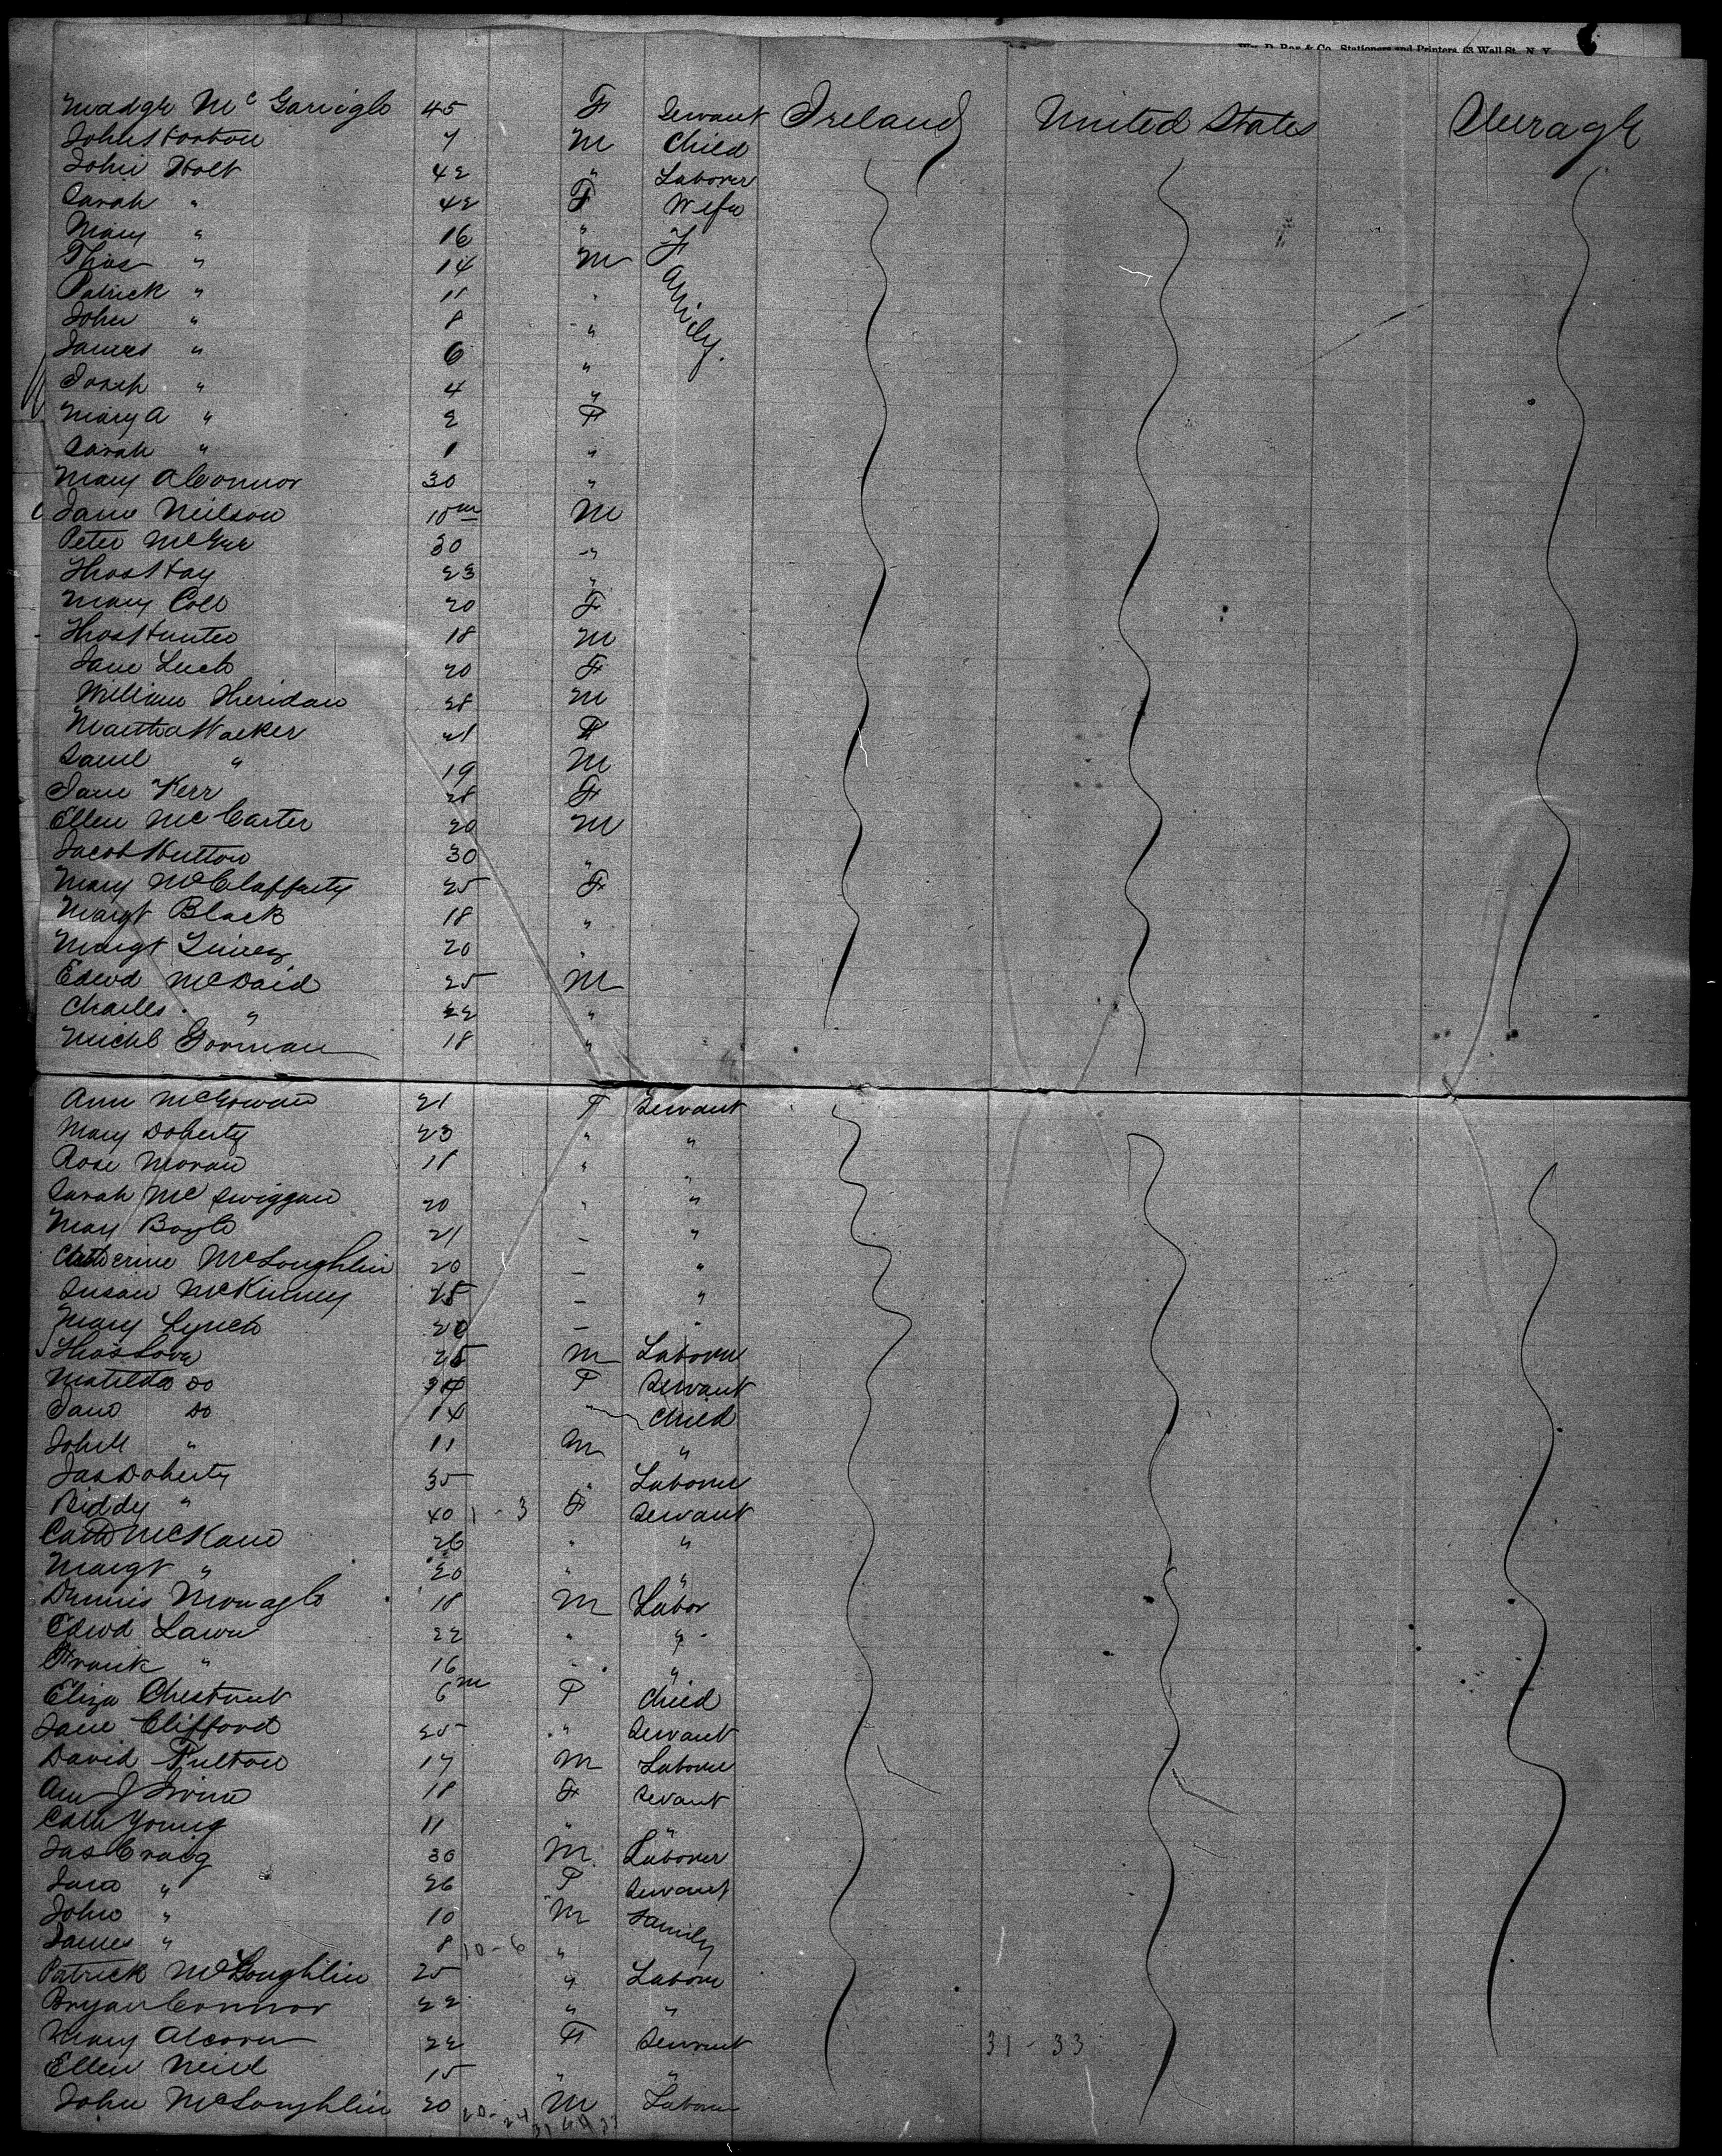 Wm. D. Roe & Co. Stationers and Printers, 63 Wall St., N. Y.
Madge Mc Garrigle 45 F Servant Ireland United States Steerage
John Horton 7 M Child
John Holt 42 " Laborer
Sarah " 42 F Wife
Mary " 16 " Family
Thos " 14 M
Patrick " 11 "
John " 8 "
James " 6 "
Joseph " 4 "
Mary A " 2 F
Sarah " 1 "
Mary A Connor 30 "
Jane Neilson 10m M
Peter McGee 30 "
Thos Hay 23 "
Mary Coll 20 F
Thos Hunter 18 M
Jane 20 F
William Sheridan 28 M
Martha Walker 21 F
Saml " 19 M
Jane Kerr 28 F
Ellen McCarter 20 M
Jacob Hutton 30 "
Mary McClafferty 25 F
Margt Black 18 "
Margt 20 "
Edwd McDaid 25 M
Charles " 22 "
Michl Gorman 18 "
Ann McGowan 21 F Servant
Mary Doherty 23 " "
Rose Moran 18 " "
Sarah Mc Swiggan 20 " "
Mary Boyle 21 " "
Catherine McLoughlin 20 " "
Susan McKinney 25 " "
Mary Lynch 20 " "
Thos Love 25 M Laborer
Matilda do F Servant
Jane do 14 " Child
John " 11 M "
Jas Doherty 35 " Laborer
Biddy " 40 1-3 F Servant
Cath McKane 26 " "
Margt " 20 " "
Dennis Monagle 18 M Labor
Edwd Lawn 22 " "
Frank " 16 " "
Eliza Chestnut 6m F Child
Jane Clifford 25 " Servant
David Fulton 17 M Laborer
Ann J Irvine 18 F Servant
Cath Young 11 " "
Jas Craig 30 M Laborer
Jane " 26 F Servant
John " 10 M Family
James " 8 10-6 "
Patrick McLoughlin 25 " Labore
Bryan Connor 22 " "
Mary Alcorn 22 F Servant 31-33
Ellen Neill 15 " "
John McLoughlin 20 M Laborer